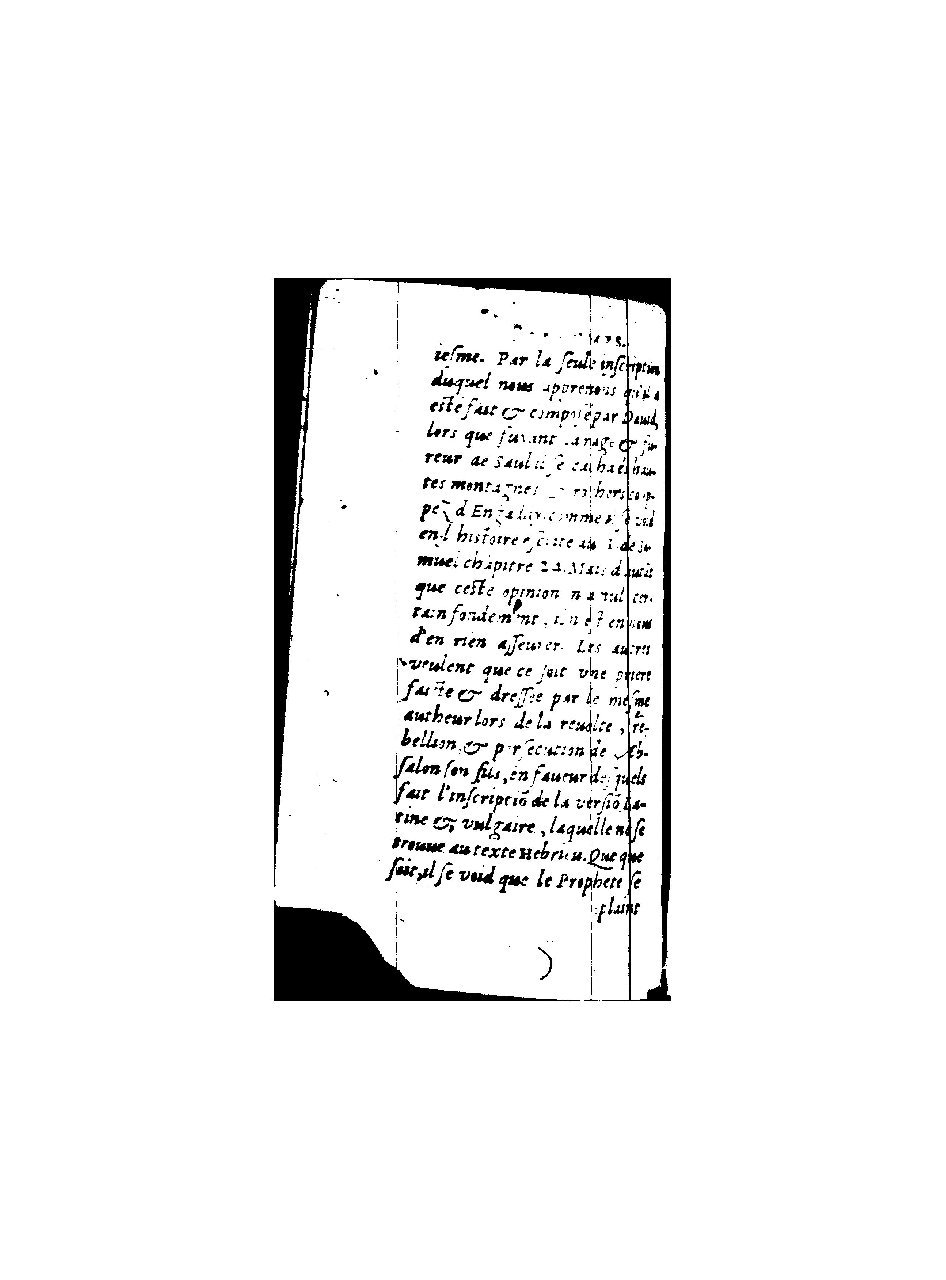 iesme. Par la ſeule inſcription
duquel nous apprenons qu'il a
eſté fait & compoſé par Dauid,
lors que fuyant la rage & fu-
reur de Saul il ſe cacha és hau-
tes montagnes rochers cou-
pez d'Engaddy comme
en l'histoire eſcrite au 1. de Sa-
muel chapitre 24. Mais d'autãt
que ceſte opinion n'a nul cer-
tain fondement,
d'en rien aſſeurer. Les autres
veulent que ce ſoit vne priere
faicte & dreſſee par le meſme
autheur lors de la reuolte, re-
bellion & perſecution de Ab-
ſalon ſon fils, en faueur deſquels
fait l'inſcriptiõ de la verſiõ La-
tine & vulgaire, laquelle ne ſe
trouue au texte Hebrieu. Que que
ſoit, il ſe void que le Prophete ſe
plaint